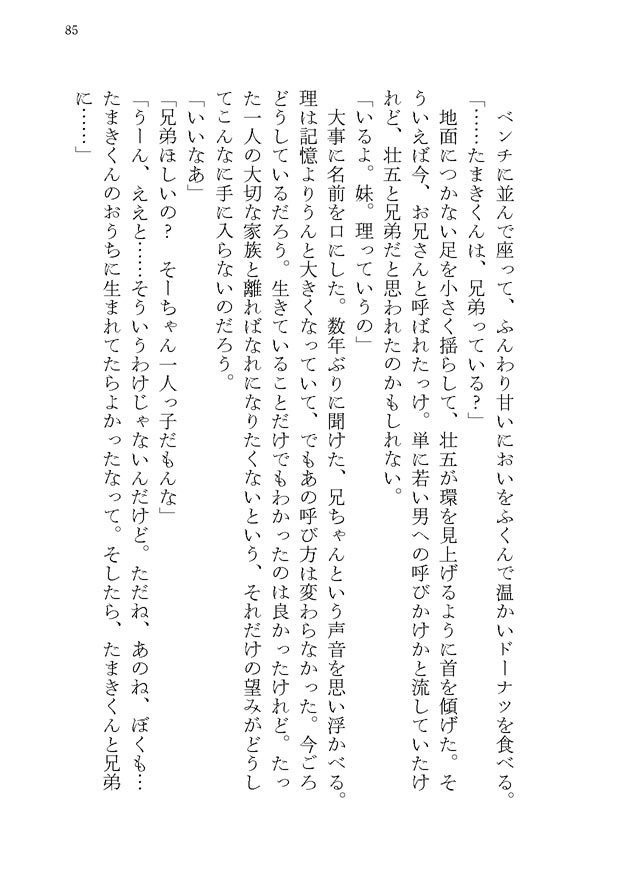 85
ベンチに並んで座って、ふんわり甘いにおいをふくんで温かいドーナツを食べる。
「……たまきくんは、兄弟っている?」
地面につかない足を小さく揺らして、壮五が環を見上げるように首を傾げた。そ
ういえば今、お兄さんと呼ばれたっけ。単に若い男への呼びかけかと流していたけ
れど、壮五と兄弟だと思われたのかもしれない。
「いるよ。妹。理っていうの」
大事に名前を口にした。数年ぶりに聞けた、兄ちゃんという声音を思い浮かべる。
理は記憶よりうんと大きくなっていて、でもあの呼び方は変わらなかった。今ごろ
どうしているだろう。生きていることだけでもわかったのは良かったけれど。たっ
た一人の大切な家族と離ればなれになりたくないという、それだけの望みがどうし
てこんなに手に入らないのだろう。
「いいなあ」
「兄弟ほしいの? そーちゃん一人っ子だもんな」
「うーん、ええと……そういうわけじゃないんだけど。ただね、あのね、ぼくも…
たまきくんのおうちに生まれてたらよかったなって。そしたら、たまきくんと兄弟
に……」